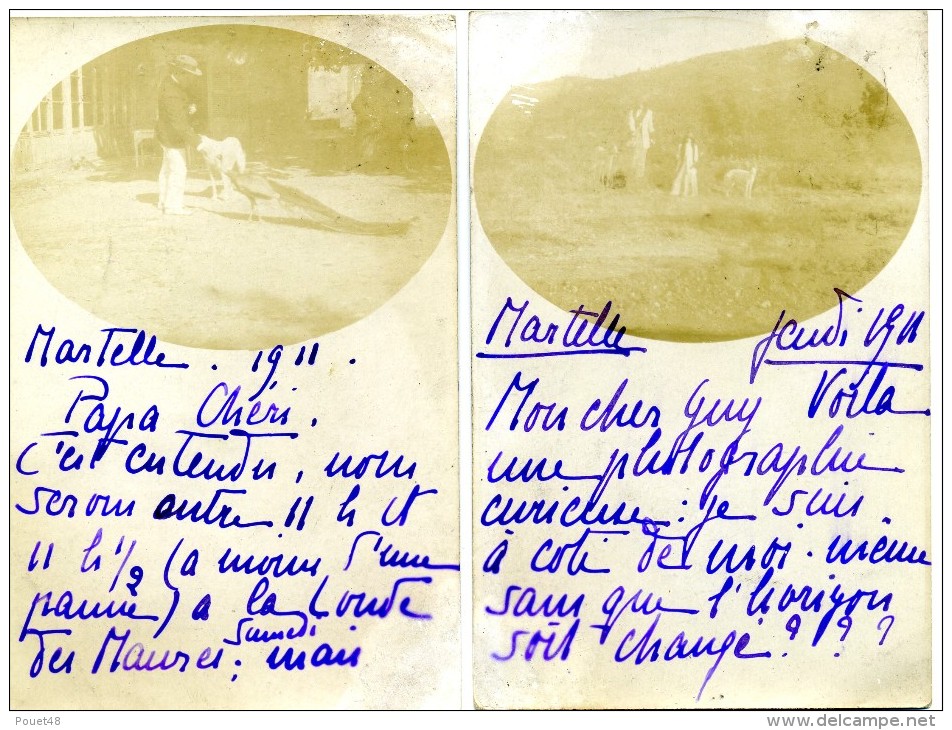 Martelle. 1911.
Papa Chéri.
C'est entendu, nous
serons entre 11 h et
11 h 1/2 (a moins d'une
panne) a la Londe
des Maures; samedi mais
Martelle Jeudi 1911
Mon cher Guy Voila
une photographie
curieuse: je suis
à coté de moi-même
sans que l'horizon
soit changé???
Pouet48
http://www.delcampe.net